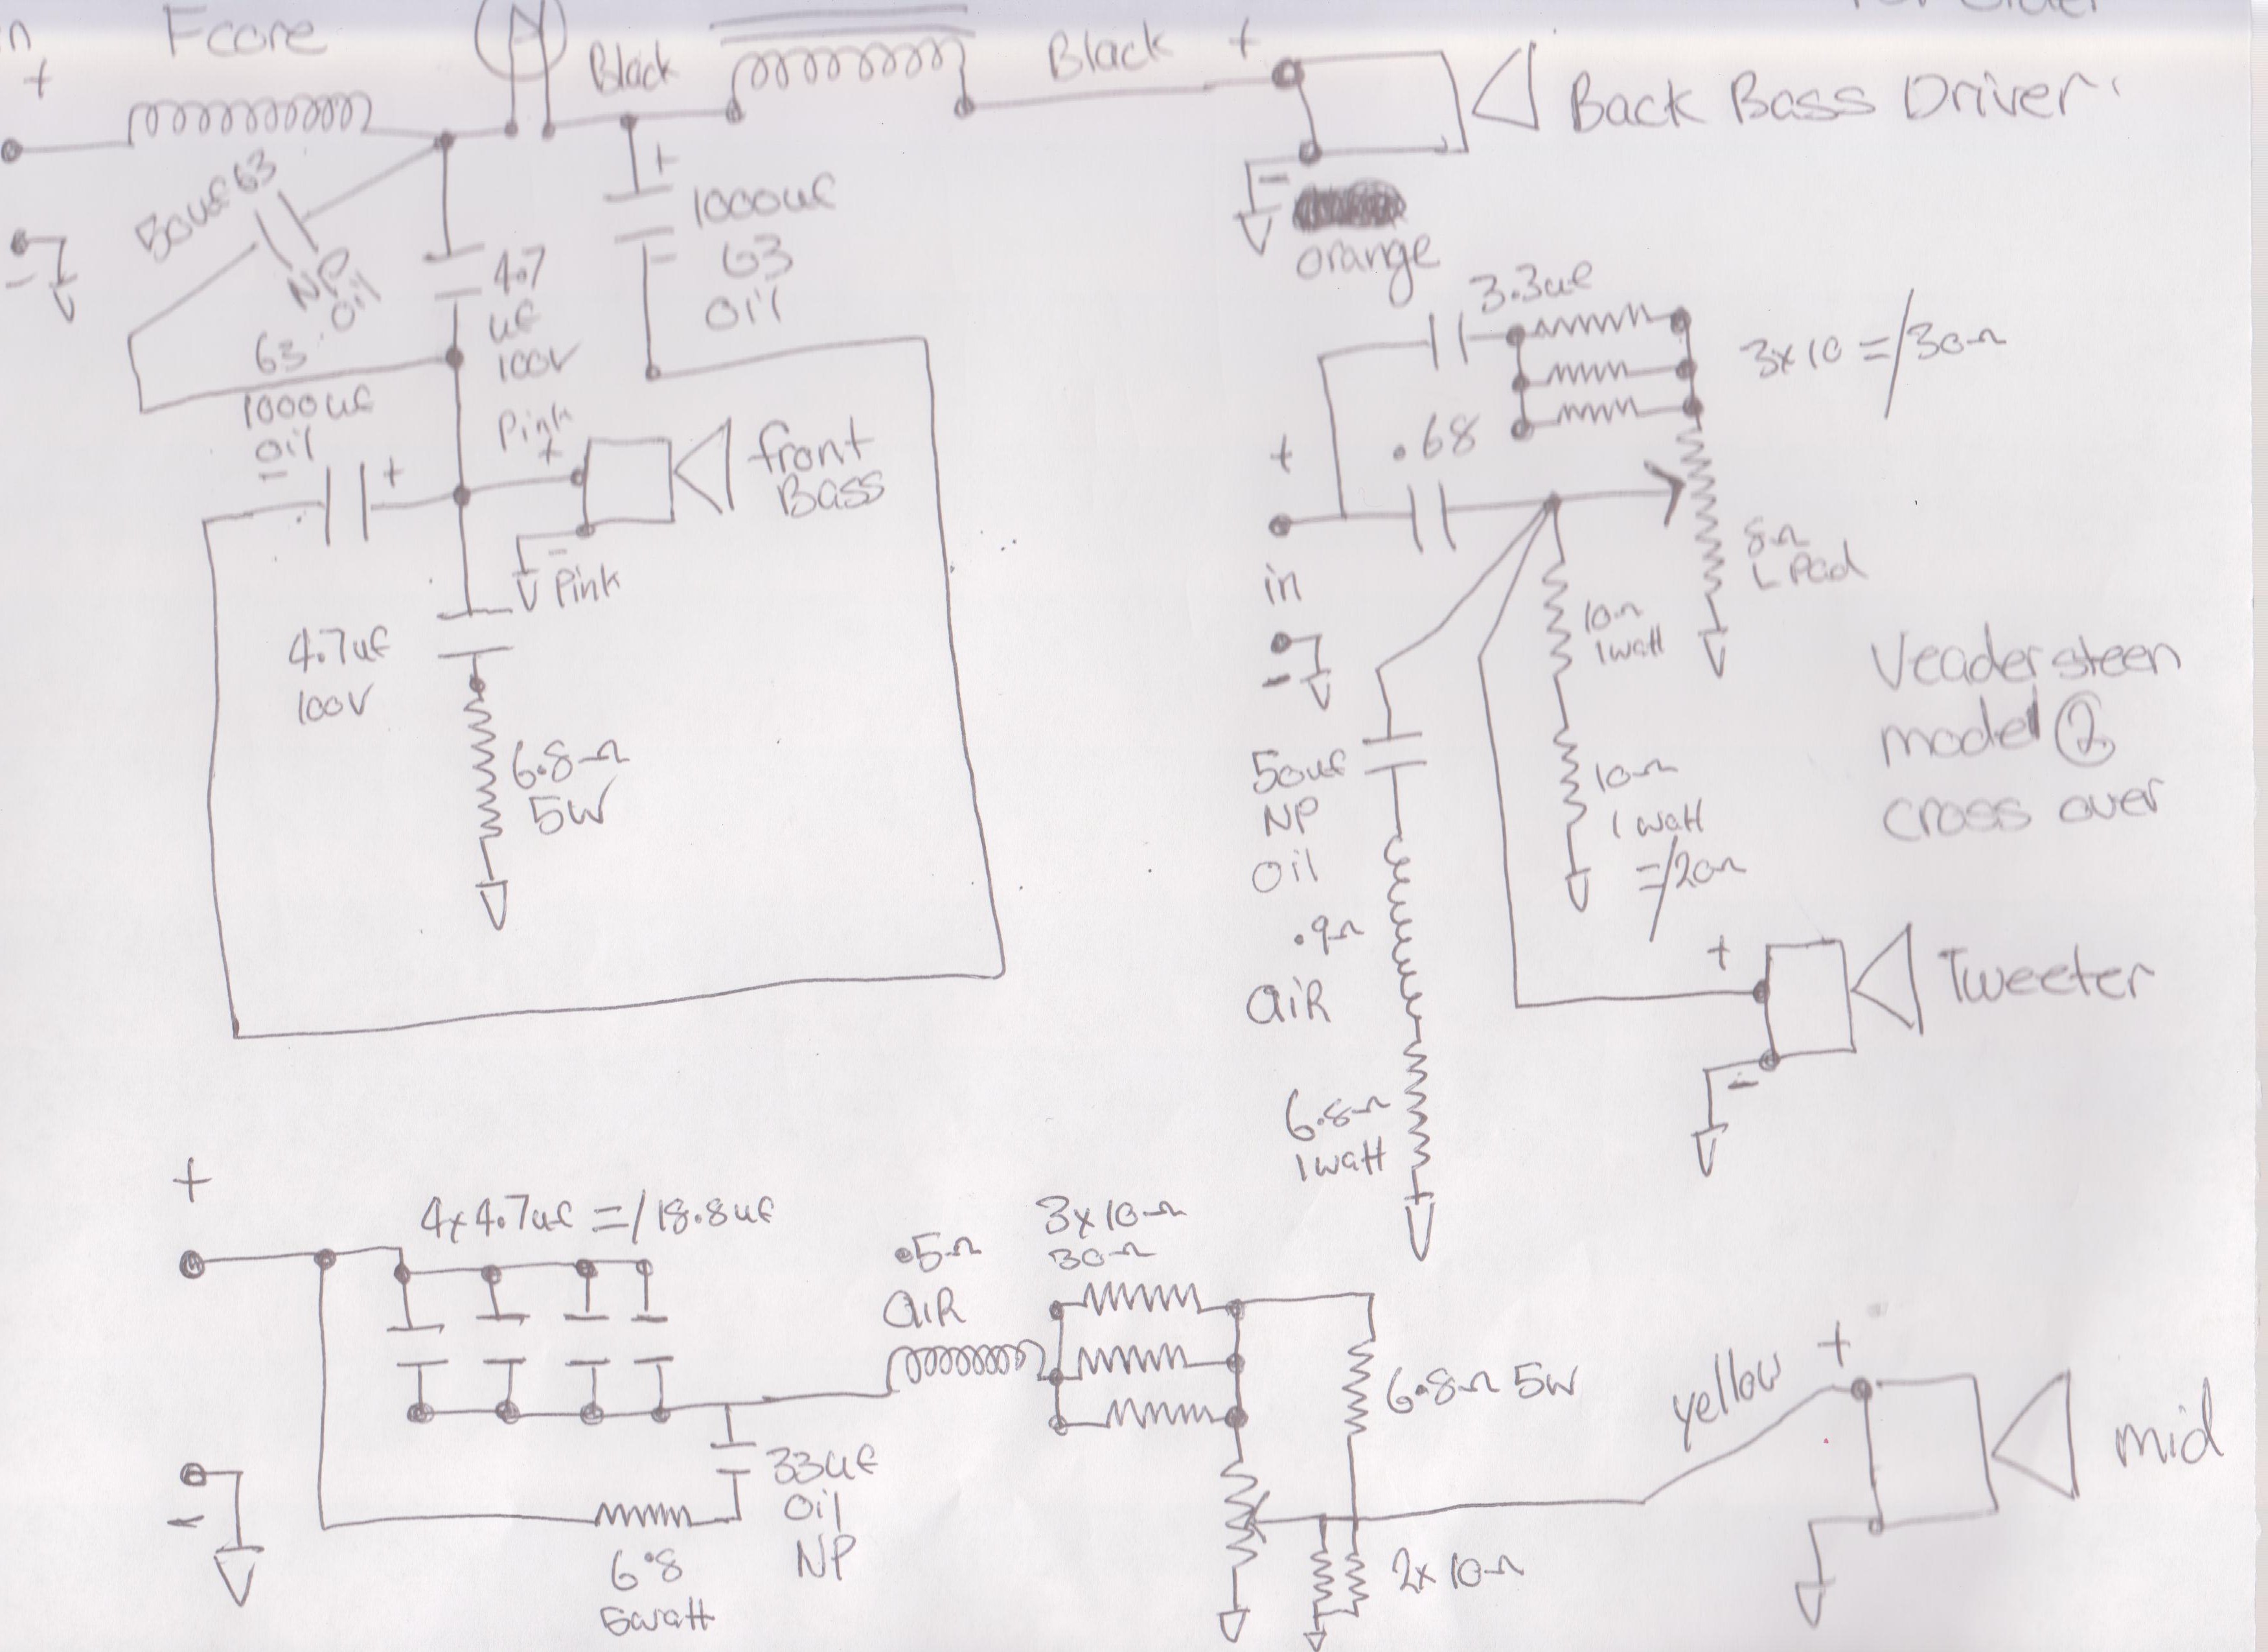 +
Fcore
Black
Black +
Back Bass Driver
50uf 63
NP
Oil
4.7
uf
100V
+
1000uf
63
Oil
-
orange
63
1000uf
Oil
- +
Pink
+
front
Bass
-
Pink
4.7uf
100V
6.8Ω
5W
3.3uf
3x10 =/30Ω
.68
+
in
-
8Ω
L Pad
10Ω
1watt
10Ω
1 watt
=/20Ω
50uf
NP
Oil
.9Ω
aiR
6.8Ω
1watt
+
Tweeter
-
Veadersteen
model 2
cross over
+
4x4.7uf =/18.8uf
.5Ω
aiR
3x10Ω
30Ω
6.8Ω 5W
33uf
Oil
NP
6.8
5watt
-
2x10Ω
yellow +
mid